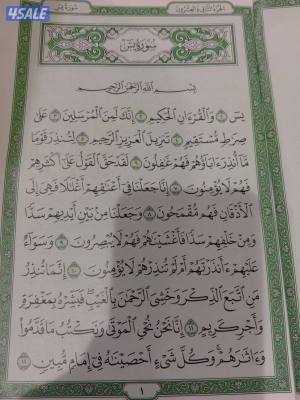 4SALE
سورة يس
الجزء الثاني والعشرون
سورة يس
بسم الله الرحمن الرحيم
يس ١ والقرءان الحكيم ٢ إنك لمن المرسلين ٣ على
صراط مستقيم ٤ تنزيل العزيز الرحيم ٥ لتنذر قوما
ما أنذر ءاباؤهم فهم غافلون ٦ لقد حق القول على أكثرهم
فهم لا يؤمنون ٧ إنا جعلنا في أعناقهم أغلالا فهي إلى
الأذقان فهم مقمحون ٨ وجعلنا من بين أيديهم سدا
ومن خلفهم سدا فأغشيناهم فهم لا يبصرون ٩ وسواء
عليهم ءأنذرتهم أم لم تنذرهم لا يؤمنون ١٠ إنما تنذر
من اتبع الذكر وخشي الرحمن بالغيب فبشره بمغفرة
وأجر كريم ١١ إنا نحن نحي الموتى ونكتب ما قدموا
وءاثارهم وكل شيء أحصيناه في إمام مبين ١٢
١